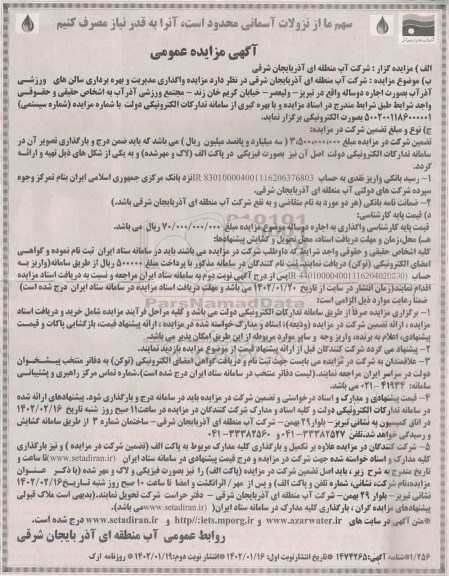 سهم ما از نزولات آسمانی محدود است، آنرا به قدر نیاز مصرف کنیم
آگهی مزایده عمومی
الف) مزایده گزار: شرکت آب منطقه ای آذربایجان شرقی
ب) موضوع مزایده: شرکت آب منطقه ای آذربایجان شرقی در نظر دارد مزایده واگذاری مدیریت و بهره برداری سالن های ورزشی
آذرآب بصورت اجاره دوساله واقع در تبریز- ولیعصر - خیابان کریم خان زند - مجتمع ورزشی آذرآب به اشخاص حقیقی و حقوقی
واجد شرایط طبق شرایط مندرج در اسناد مزایده و با بهره گیری از سامانه تدارکات الکترونیکی دولت با شماره مزایده (شماره سیستمی)
۵۰۰۲۰۰۱۱۸۶۰۰۰۰۰۱ بصورت الکترونیکی برگزار نماید.
ج) نوع و مبلغ تضمین شرکت در مزایده:
تضمین شرکت در مزایده مبلغ ۳/۵۰۰/۰۰۰/۰۰۰ (سه میلیارد و پانصد میلیون ریال) می باشد که باید ضمن درج و بارگذاری تصویر آن در
سامانه تدارکات الکترونیکی دولت اصل آن نیز بصورت فیزیکی در پاکت الف (لاک و مهرشده) و به یکی از شکل های ذیل تهیه و ارائه
گردد.
۱- رسید بانکی واریز نقدی به حساب IR 830100004001116206376803 نزد بانک مرکزی جمهوری اسلامی ایران بنام تمرکز وجوه
سپرده شرکت های دولتی آب منطقه ای آذربایجان شرقی.
۲- ضمانت نامه بانکی (هر دو مورد به نام متقاضی و به نفع شرکت آب منطقه ای آذربایجان شرقی باشد.)
د) قیمت پایه کارشناسی:
قیمت پایه کارشناسی واگذاری به اجاره دوساله موضوع مزایده مبلغ ۷۰/۰۰۰/۰۰۰/۰۰۰ ریال می باشد.
ه) محل، زمان و مهلت دریافت اسناد، محل تحویل و گشایش پیشنهادها:
کلیه اشخاص حقیقی و حقوقی واجد شرایط که داوطلب شرکت در مزایده می باشند باید در سامانه ستاد ایران ثبت نام نموده و گواهی
امضای الکترونیکی (توکن) دریافت نمایند. ثبت نام کنندگان در سامانه مذکور با پرداخت مبلغ ۵۰۰۰۰۰ ریال از طریق سامانه (واریز به
حساب IR 440100004001116204020701) پس از درج آگهی نوبت دوم به سامانه ستاد ایران مراجعه و نسبت به دریافت اسناد مزایده
اقدام نمایند (زمان انتشار در سایت از تاریخ ۱۴۰۲/۰۱/۲۰ می باشد و مهلت دریافت اسناد
ضمناً رعایت موارد ذیل الزامی است:
۱- برگزاری مزایده صرفاً از طریق سامانه تدارکات الکترونیکی دولت می باشد و کلیه مراحل فرآیند مزایده شامل خرید و دریافت اسناد
مزایده، ارائه تضمین شرکت در مزایده (ودیعه)، اسناد و مدارک خواسته شده در مزایده، ارائه پیشنهاد قیمت، بازگشایی پاکات و قیمت
پیشنهادی، اعلام به برنده، واریز وجه و سایر موارد مربوطه از این طریق امکان پذیر می باشد.
۲- پیشنهاد می گردد شرکت کنندگان قبل از ارائه پیشنهاد قیمت از موضوع مزایده بازدید نمایند.
۳- علاقمندان به شرکت در مزایده می بایست جهت ثبت نام و دریافت گواهی امضای الکترونیکی (توکن) به دفاتر منتخب پیشخوان
دولت در سراسر ایران مراجعه نمایند. (لیست دفاتر منتخب در سامانه ستاد ایران درج شده است). شماره تماس مرکز راهبری و پشتیبانی
سامانه: ۴۱۹۳۴-۰۲۱ می باشد.
۴- قیمت پیشنهادی و مدارک و اسناد درخواستی و تضمین شرکت در مزایده باید در سامانه درج و بارگذاری شود. پیشنهادهای ارائه شده
در سامانه تدارکات الکترونیکی دولت و کلیه اسناد و مدارک شرکت کنندگان در مزایده در ساعت ۱۱ صبح روز شنبه تاریخ ۱۴۰۲/۰۲/۱۶
در اتاق کمیسیون به نشانی تبریز- بلوار ۲۹ بهمن- شرکت آب منطقه ای آذربایجان شرقی - ساختمان شماره ۳ از طریق سامانه گشایش
و رسیدگی خواهد شد. تلفن ۳۳۳۸۲۵۲۷-۰۴۱ و ۳۳۳۸۲۵۶۰-۰۴۱
۵- شرکت کنندگان در مزایده علاوه بر تکمیل و بارگذاری کلیه مدارک مربوط به پاکت الف (تضمین شرکت در مزایده) و نیز بارگذاری
کلیه مدارک و اسناد خواسته شده جهت شرکت در مزایده و درج قیمت پیشنهادی در سامانه ستاد ایران (www.setadiran.ir) تا ساعت و
تاریخ مندرج به شرح زیر، باید اصل تضمین شرکت در مزایده (پاکت الف) را نیز بصورت فیزیکی و لاک و مهر شده (با ذکر عنوان
مزایده، نام شرکت، نشانی، شماره تلفن و پاکت الف) و پس از مهر، امضا تا ساعت ۱۰ صبح روز شنبه تاریخ ۱۴۰۲/۰۲/۱۶ به
نشانی تبریز- بلوار ۲۹ بهمن- شرکت آب منطقه ای آذربایجان شرقی - دفتر حراست شرکت تحویل نمایند. (بدیهی است ملاک قبولی
پیشنهادهای مزایده گران، بارگذاری کلیه مدارک در سامانه ستاد ایران (www.setadiran.ir) می باشد).
*متن آگهی در سایت های www.azarwater.ir و http//:iets.mporg.ir و www.setadiran.ir درج شده است.
روابط عمومی آب منطقه ای آذربایجان شرقی
۱/۲۵۶ *شناسه آگهی: ۱۴۷۴۲۶۵ *تاریخ انتشار نوبت اول: ۱۴۰۲/۰۱/۱۶ *انتشار نوبت دوم: ۱۴۰۲/۰۱/۱۹ روزنامه ارک
ParsNamadData